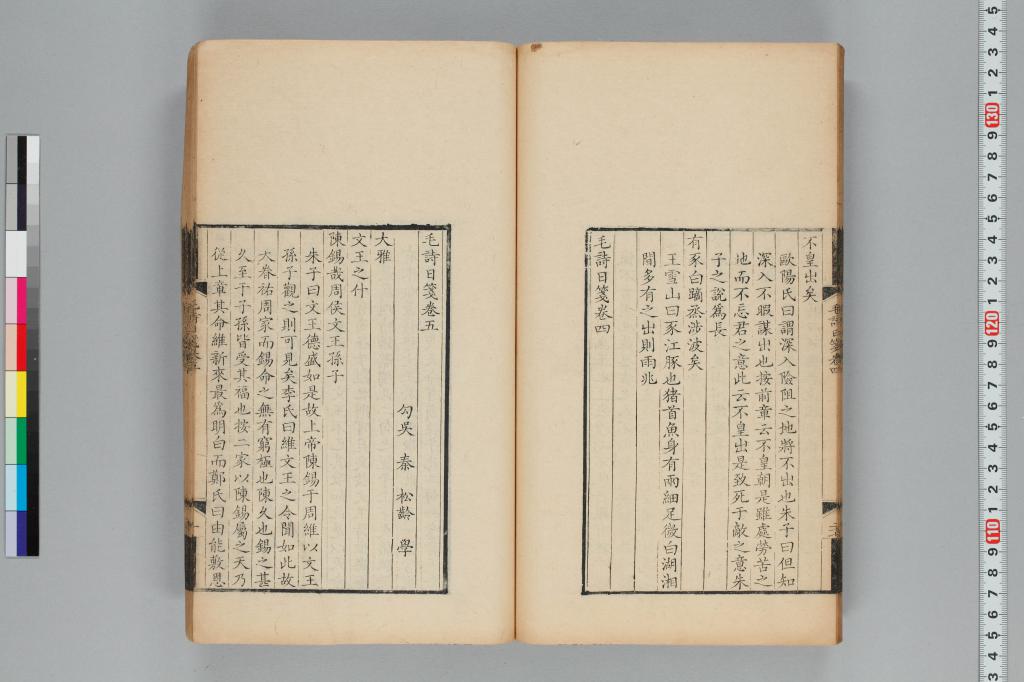 不皇出矣
歐陽氏曰謂深入險阻之地將不出也朱子曰但知
深入不暇謀出也按前章云不皇朝是雖處勞苦之
地而不忘君之意此云不皇出是致死于敵之意朱
子之說為長
有豕白蹢烝涉波矣
王雪山曰豕江豚也猪首魚身有兩細足微白湖湘
間多有之出則雨兆
毛詩日箋卷四
毛詩日箋卷四
毛詩日箋卷五
勾吳 秦 松齡 學
大雅
文王之什
陳錫哉周侯文王孫子
朱子曰文王德盛如是故上帝陳錫于周維以文王
孫子觀之則可見矣李氏曰維文王之令聞如此故
大眷祐周家而錫命之無有窮極也陳久也錫之甚
久至于子孫皆受其福也按二家以陳錫屬之天乃
從上章其命維新來最為明白而鄭氏曰由能敷恩
5
4
3
2
1
130
9
8
7
6
5
4
3
2
1
120
9
8
7
6
5
4
3
2
1
110
9
8
7
6
5
4
3